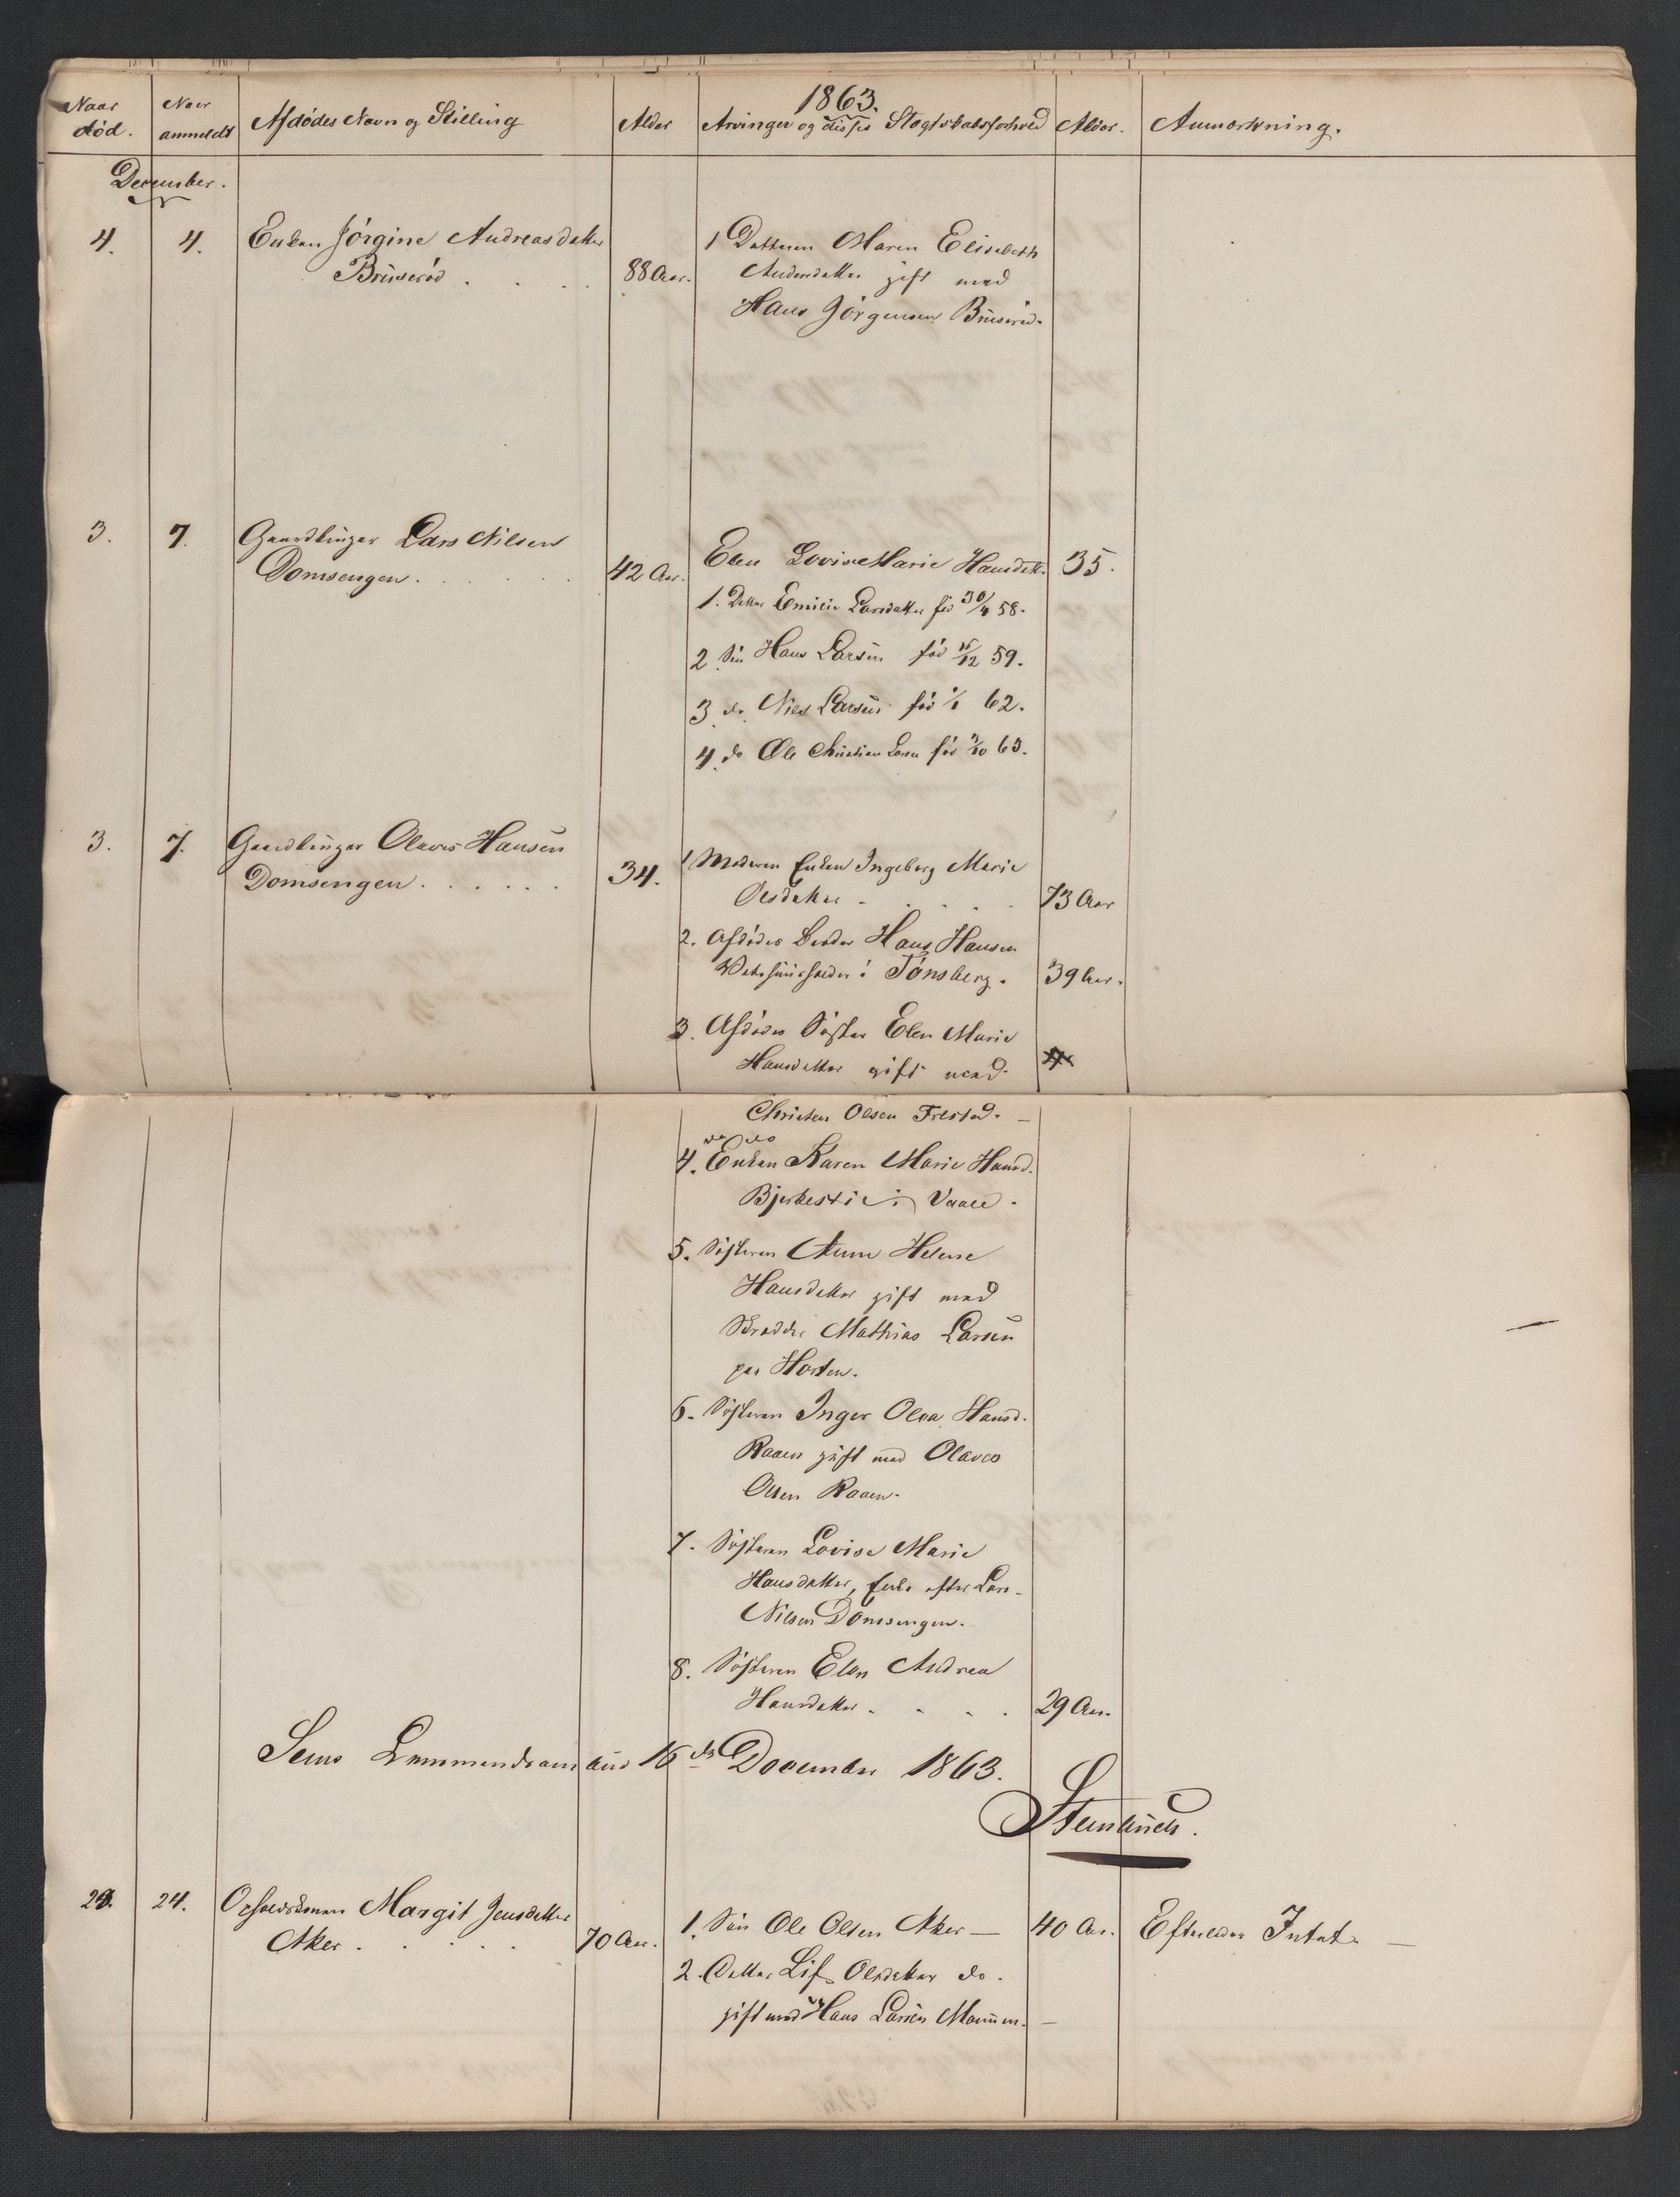 1863.
Naar død. Naar anmeldt Afdødes Navn og Stilling Alder Arvinger og disses Slægtskabsforhold Alder. Anmærkning.
December.
4. 4. Enken Jörgine Andreasdatter 1 Datteren Maren Elisabeth
Brüserød . . . 88 Aar. Andersdatter gift med
Hans Jörgensen Brüserød.
3. 7. Gaardbruger Lars Nilsen
Domsengen . . . . . 42 Aar. Enken Lovise Marie Hansdatt. 35.
1. Datter Emilie Larsdatter fød 30/4 58.
2. Sön Hans Larsen fød 15/12 59.
3. do. Niels Larsen fød 1/1 62.
4. do Ole Christian Larsen fød /10 63.
3. 7. Gaardbruger Olaves Hansen
Domsengen . . . . . . 34. 1 Moderen Enken Ingeborg Marie
Olsdatter . . . . . 73 Aar
2. Afdødes Broder Hans Hansen
i Tönsberg. 39 Aar.
3. Afdødes Söster Elen Marie
Hansdatter gift med
Christen Olsen Frestad. —
do do
4. Enken Karen Marie Hansd.
Bjerkestie i Vaale.
5. Sösteren Anne Helene
Hansdatter gift med
Skrædder Mathias Larsen
paa Horten.
6. Sösteren Inger Olea Hansd.
Raaen gift med Olaves
Olsen Raaen.
7. Sösteren Lovise Marie
Hansdatter, Enke efter Lars
Nilsen Domsengen.
8. Sösteren Elen Andrea
Hansdatter . . . . 29 Aar.
Sems Lensmandscombud 16de December 1863.
Steinbuch.
24. 24. Opholdskonen Margit Jensdatter
Aker . . . . . 70 Aar. 1. Sön Ole Olsen Aker — 40 Aar. Efterlader Intet. —
2. Datter Lif Olsdatter do.
gift med Hans Larsen Mommen. —